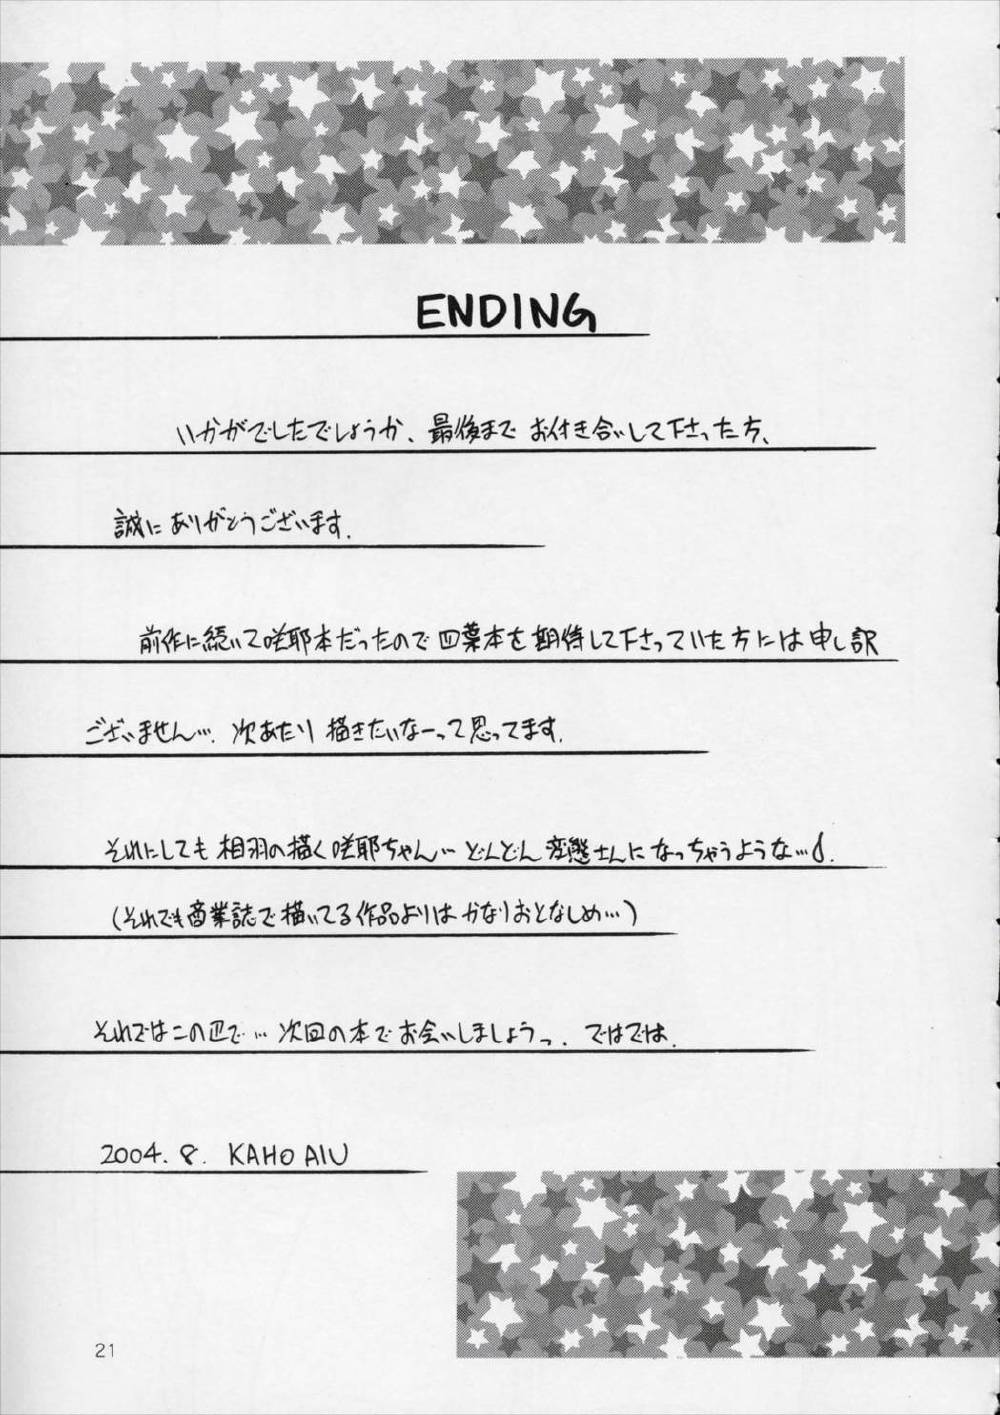 ENDING
いかがでしたでしょうか、最後までお付き合いして下さった方、
誠にありがとうございます.
前作に続いて咲耶本だったので四葉本を期待して下さっていた方には申し訳
ございません…. 次あたり描きたいなーって思ってます.
それにしても相羽の描く咲耶ちゃん…どんどん変態さんになっちゃうような…♪.
(それでも商業誌で描いてる作品よりはかなりおとなしめ…)
それではこの辺で…次回の本でお会いしましょうっ. ではでは.
2004. 8. KAHO AIU
21